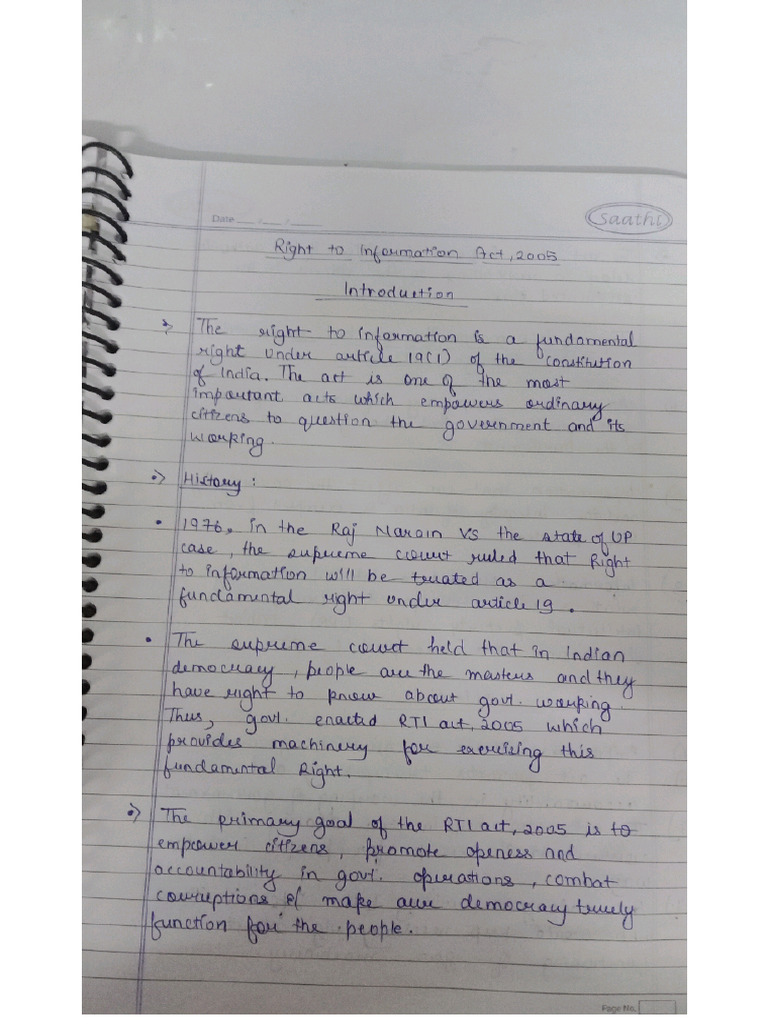 Date ___/___/___
Saathi
Right to Information Act, 2005
Introduction
The right to information is a fundamental
right under article 19(1) of the constitution
of India. The act is one of the most
important acts which empowers ordinary
citizens to question the government and its
working.
•) History :
• 1976, in the Raj Narain VS the state of UP
case, the supreme court ruled that Right
to information will be treated as a
fundamental right under article 19.
• The supreme court held that in Indian
democracy, people are the masters and they
have right to know about govt. working.
Thus, govt. enacted RTI act, 2005 which
provides machinery for exercising this
fundamental Right.
•) The primary goal of the RTI act, 2005 is to
empower citizens, promote openess and
accountability in govt. operations, combat
corruptions & make our democracy truely
function for the people.
Page No.